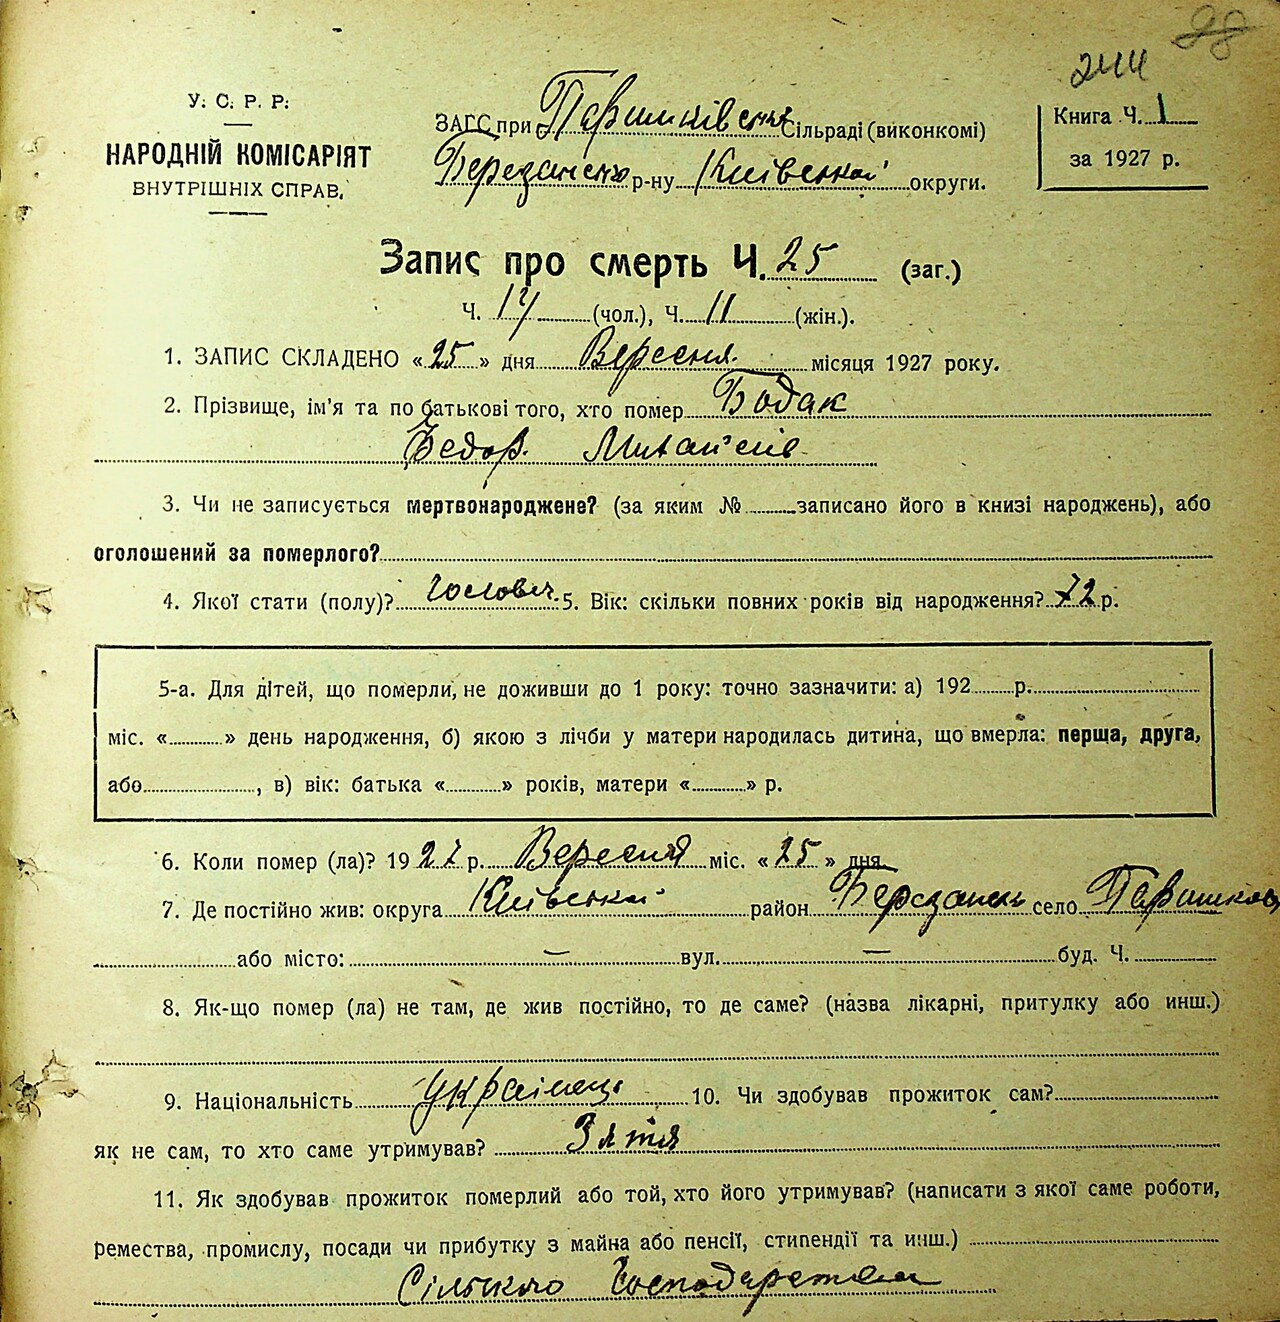 98
244
У. С. Р. Р.
НАРОДНІЙ КОМІСАРІЯТ
ВНУТРІШНІХ СПРАВ.
ЗАГС при Паришківській Сільраді (виконкомі)
Березансько р-ну Київської округи.
Книга Ч. 1
за 1927 р.
Запис про смерть Ч. 25 (заг.)
Ч. 14 (чол.), Ч. 11 (жін.).
1. ЗАПИС СКЛАДЕНО «25» дня Вересня місяця 1927 року.
2. Прізвище, ім'я та по батькові того, хто помер Бодак
Федор Михайлів
3. Чи не записується мертвонароджене? (за яким № записано його в книзі народжень), або
оголошений за померлого?
4. Якої стати (полу)? Чоловіч. 5. Вік: скільки повних років від народження? 72 р.
5-а. Для дітей, що померли, не доживши до 1 року: точно зазначити: а) 192 р.
міс. « » день народження, б) якою з лічби у матери народилась дитина, що вмерла: перша, друга,
або , в) вік: батька « » років, матери « » р.
6. Коли помер (ла)? 1927 р. Вересня міс. «25» дня
7. Де постійно жив: округа Київській район Березанськ село Паришков
або місто: — вул. — буд. Ч.
8. Як-що помер (ла) не там, де жив постійно, то де саме? (назва лікарні, притулку або инш.)
9. Національність Українець 10. Чи здобував прожиток сам?
як не сам, то хто саме утримував? Зятя
11. Як здобував прожиток померлий або той, хто його утримував? (написати з якої саме роботи,
ремества, промислу, посади чи прибутку з майна або пенсії, стипендії та инш.)
Сільского Господарством